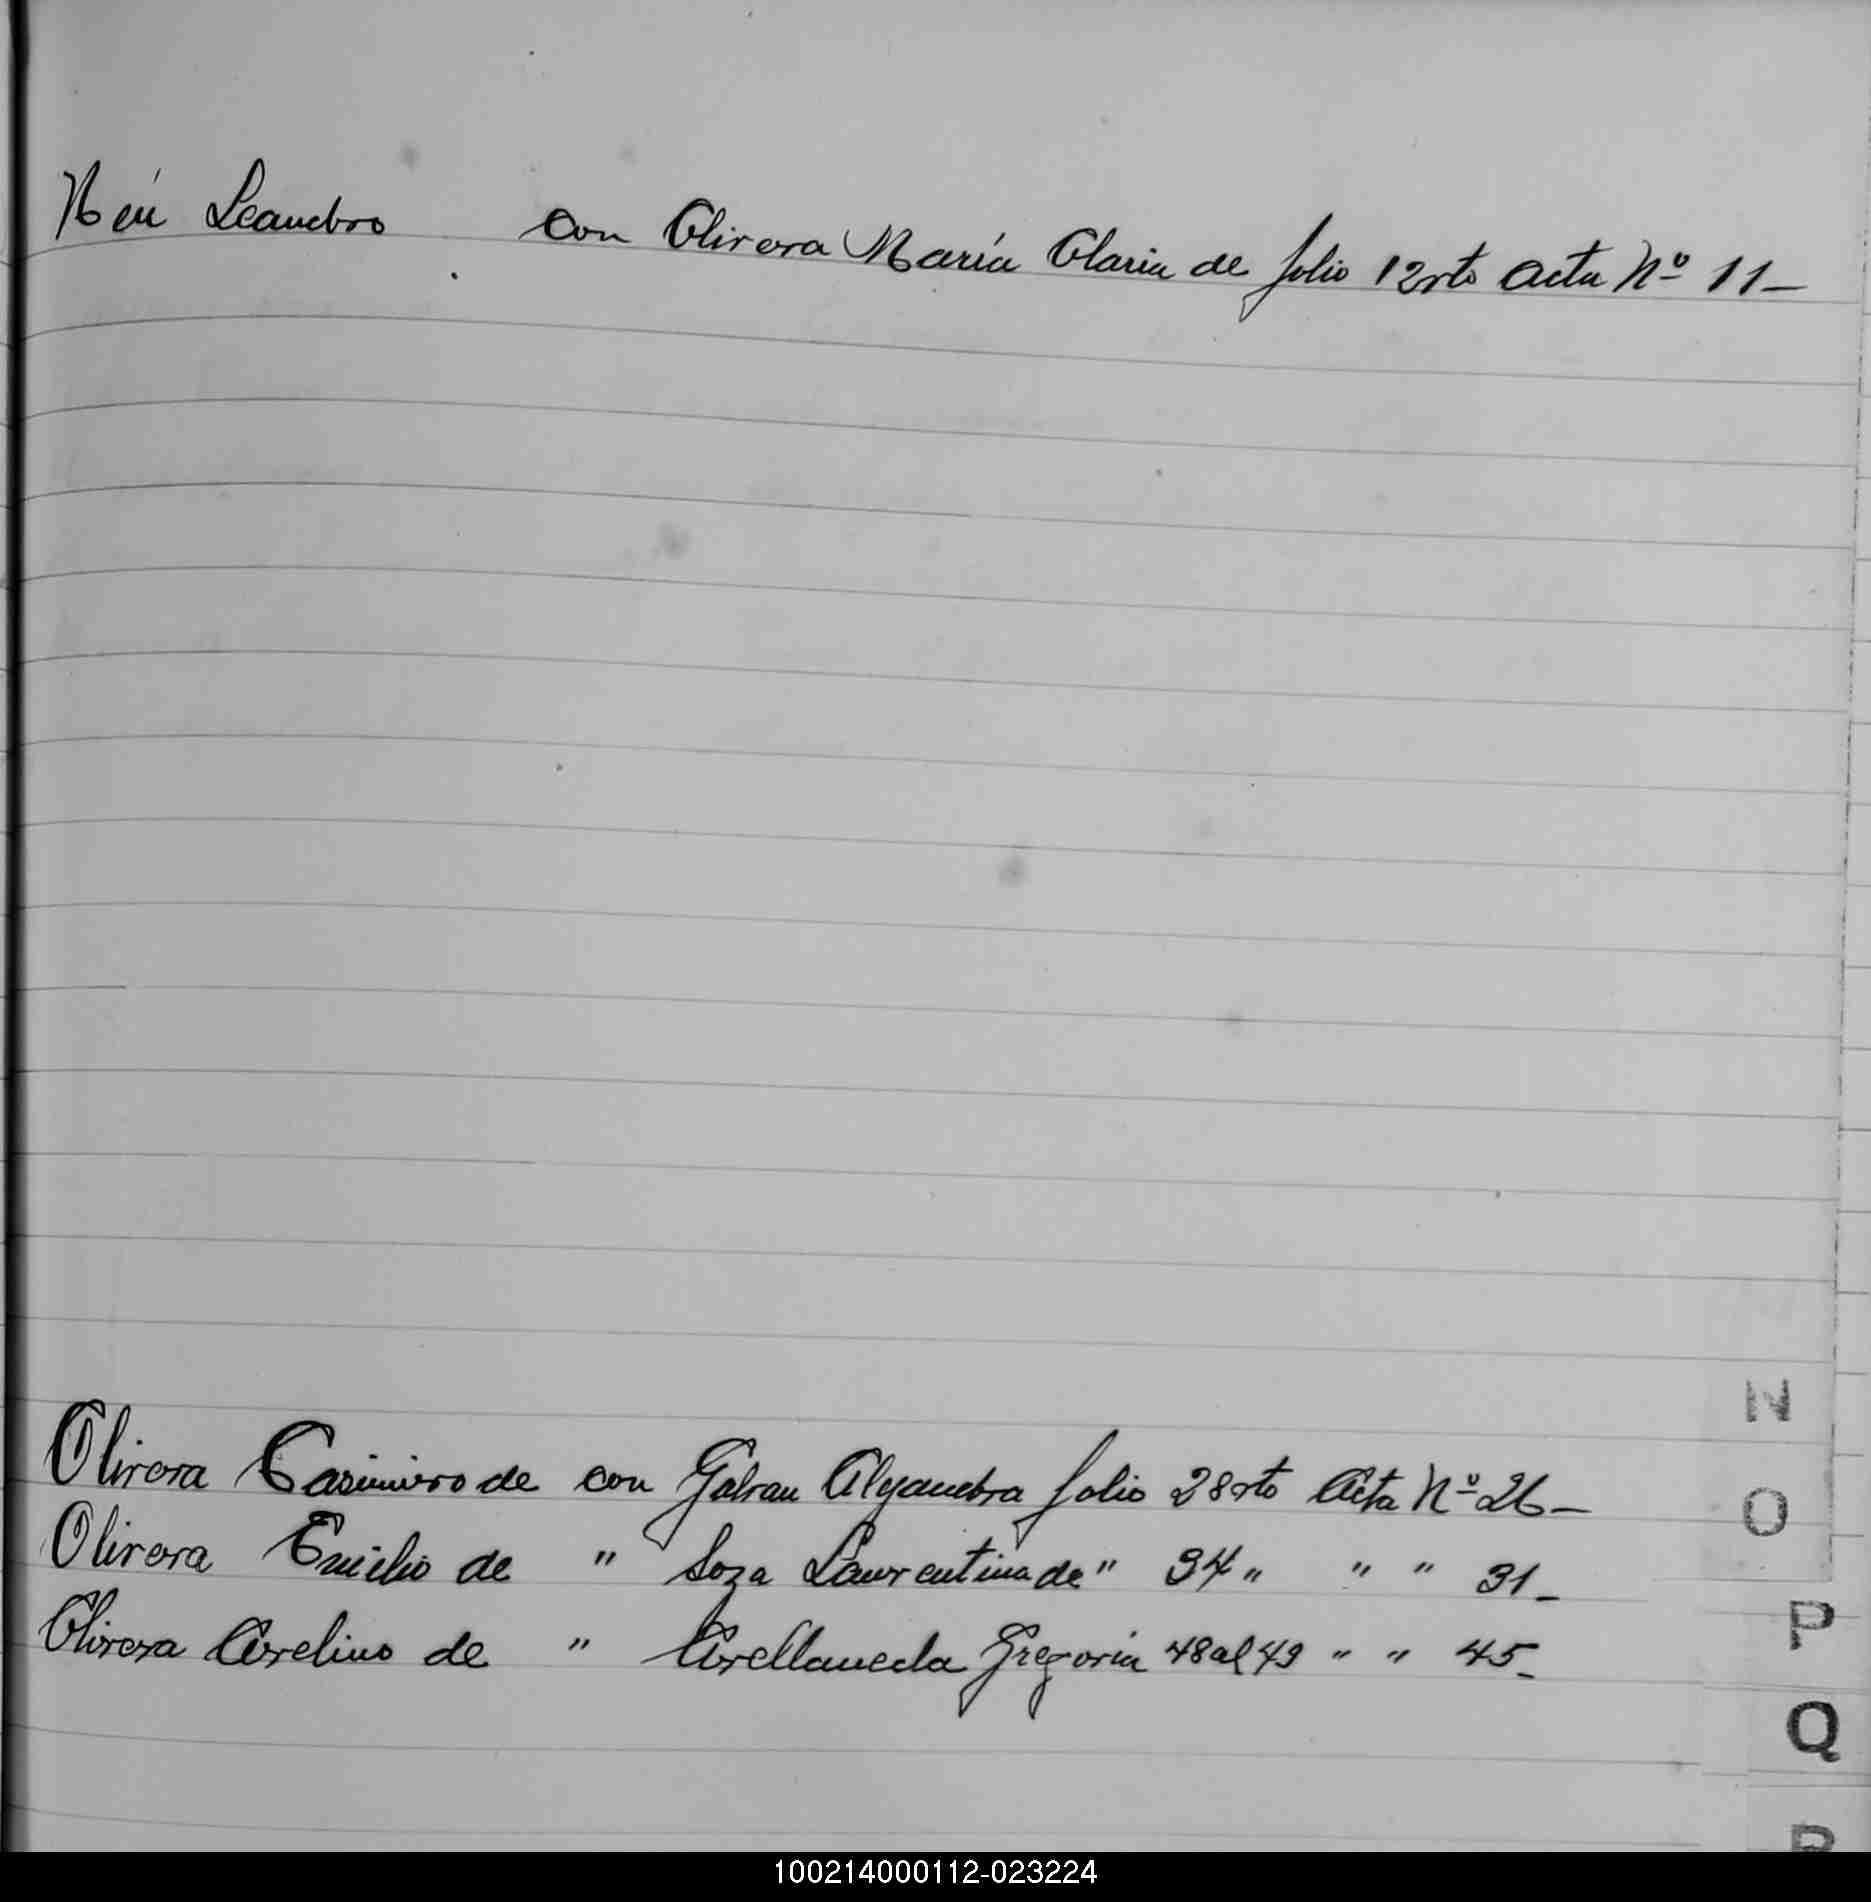 Neú Leandro con Olivera María Olaria de folio 12vto Acta Nº 11-
Olivera Casimiro de con Galvan Alejandra folio 28vto Acta Nº 26-
Olivera Emilio de " Soza Laurentina de " 34 " " " 31-
Olivera Avelino de " Avellaneda Gregoria 48 al 49 " " 45-
N
O
P
Q
R
100214000112-023224